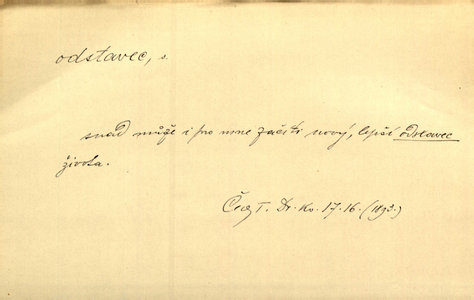 odstavec, s.
snad může i pro mne začíti nový, lepší odstavec
života.
Čech. Dr. Kv. 17. 16. (1893.)